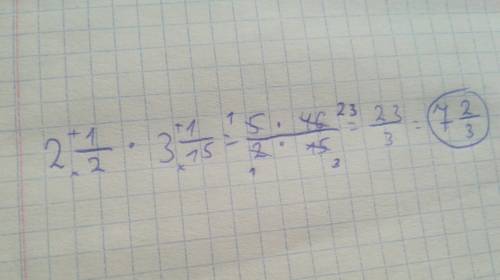 2 1/2 · 3 1/15 = 5 · 46 / 2 · 15 = 23/3 = 7 2/3